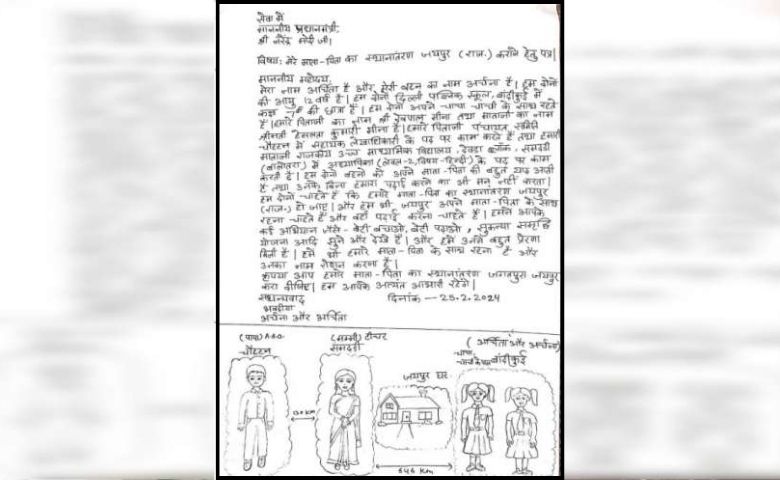 सेवा में
माननीय प्रधानमंत्री,
श्री नरेंद्र मोदी जी।
विषय: मेरे माता-पिता का स्थानांतरण जयपुर (राज.) कराने हेतु पत्र।
माननीय महोदय,
मेरा नाम अर्चिता है और मेरी बहन का नाम अर्चना है। हम दोनों
की आयु 12 वर्ष है। हम दोनों दिल्ली पब्लिक स्कूल, बांदीकुई में
कक्षा 7th की छात्रा हैं। हम दोनों अपने चाचा-चाची के साथ रहते
हैं। हमारे पिताजी का नाम श्री देवपाल मीना तथा माताजी का नाम
श्रीमती हेमलता कुमारी मीना है। हमारे पिताजी पंचायत समिति
चौहटन में सहायक लेखाधिकारी के पद पर काम करते हैं तथा हमारी
माताजी राजकीय उच्च माध्यमिक विद्यालय, देवड़ा ब्लॉक, समदड़ी
(बालोतरा) में अध्यापिका (लेवल-2, विषय-हिन्दी) के पद पर काम
करती हैं। हम दोनों बहनों को अपने माता-पिता की बहुत याद आती
है तथा उनके बिना हमारा पढ़ाई करने का भी मन नहीं करता।
हम दोनों चाहते हैं कि हमारे माता-पिता का स्थानांतरण जयपुर
(राज.) हो जाए। और हम भी जयपुर अपने माता-पिता के साथ
रहना चाहते हैं और वहीं पढ़ाई करना चाहते हैं। हमने आपके
कई अभियान जैसे- बेटी बचाओ, बेटी पढ़ाओ, सुकन्या समृद्धि
योजना आदि सुने और देखे हैं। और हमें उनसे बहुत प्रेरणा
मिली है। हमें भी हमारे माता-पिता के साथ रहना है और
उनका नाम रोशन करना है।
कृपया आप हमारे माता-पिता का स्थानांतरण जगतपुरा जयपुर
करा दीजिए। हम आपके अत्यंत आभारी रहेंगे।
सधन्यवाद दिनांक -- 25.2.2024
भवदीया
अर्चना और अर्चिता
(पापा) A.A.O. (मम्मी) टीचर (अर्चिता और अर्चना)
चौहटन समदड़ी बांदीकुई
जयपुर घर
130 KM
546 Km